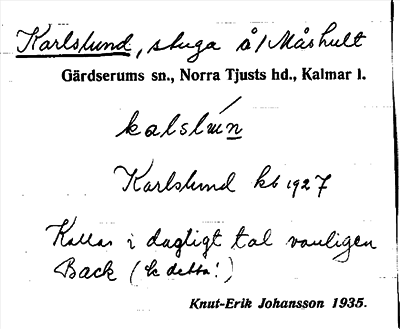 Karlslund, stuga å/Måshult
Gärdserums sn., Norra Tjusts hd., Kalmar l.
kalslún
Karlslund kb 1927
Kallas i dagligt tal vanligen
Back (se detta!)
Knut-Erik Johansson 1935.